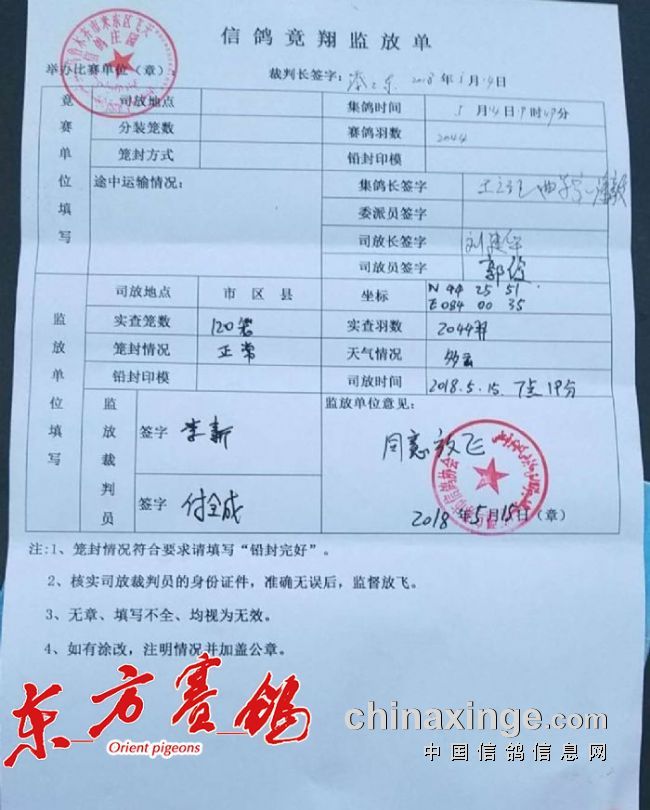 信鸽竞翔监放单
举办比赛单位(章):
裁判长签字: 2018年5月14日
竞赛单位填写
司放地点 集鸽时间 5月14日
分装笼数 赛鸽羽数 2044
笼封方式 铅封印模
途中运输情况: 集鸽长签字
委派员签字
司放长签字 刘建军
司放员签字 郭俊
监放单位填写
司放地点 市 区 县 坐标 N 44 25 51 E 084 00 35
实查笼数 120笼 实查羽数 2044羽
笼封情况 正常 天气情况 多云
铅封印模 司放时间 2018.5.15. 7点19分
监放裁判员
签字 李新
签字 付全成
监放单位意见:
同意放飞
2018年5月15日(章)
注:1、笼封情况符合要求请填写“铅封完好”。
2、核实司放裁判员的身份证件,准确无误后,监督放飞。
3、无章、填写不全、均视为无效。
4、如有涂改,注明情况并加盖公章。
东方赛鸽
Orient pigeons
chinaxinge.com
中国信鸽信息网